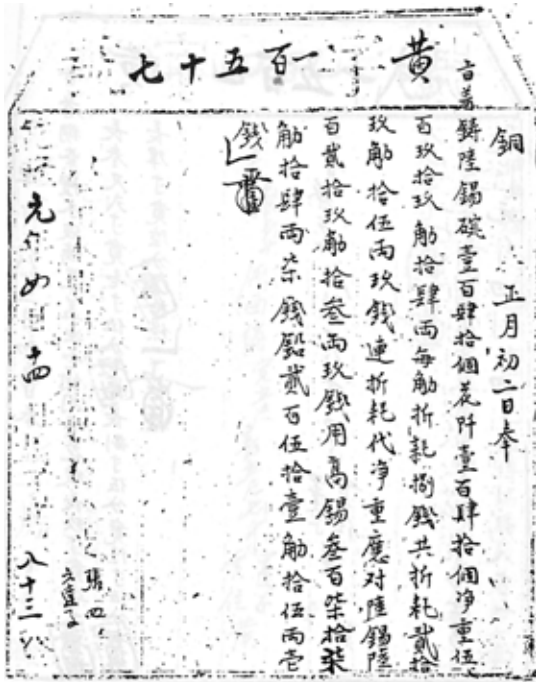 黄 一百五十七
銅 正月初二日奉
旨着鑄陸錫碗壹百肆拾個花阡壹百肆拾個净重伍
百玖拾玖觔拾肆兩每觔折耗捌錢共折耗貳拾
玖觔拾伍兩玖錢連折耗代净重應对陸錫陸
百貳拾玖觔拾叁兩玖錢用高錫叁百柒拾柒
觔拾肆兩柒錢鉛貳百伍拾壹觔拾伍兩壱
錢
張四
元 十四 八十三